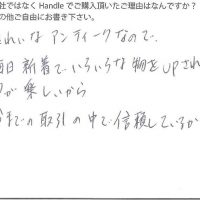 社ではなく Handle でご購入頂いたご理由はなんですか？
の他ご自由にお書き下さい。
れいな アンティークなので、
毎日新着でいろいろな物をupされ
が楽しいから
までの取引の中で信頼しているか